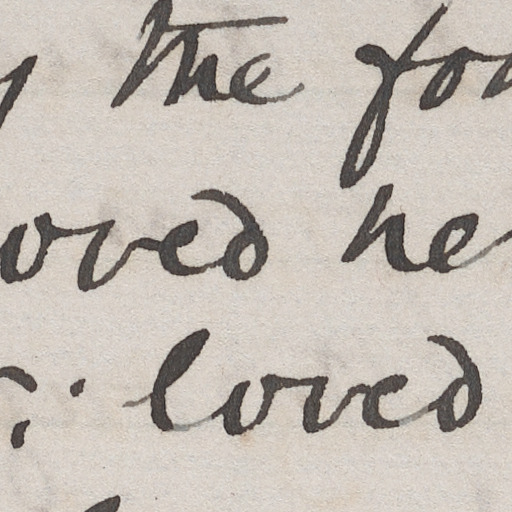 the
oved he
loved